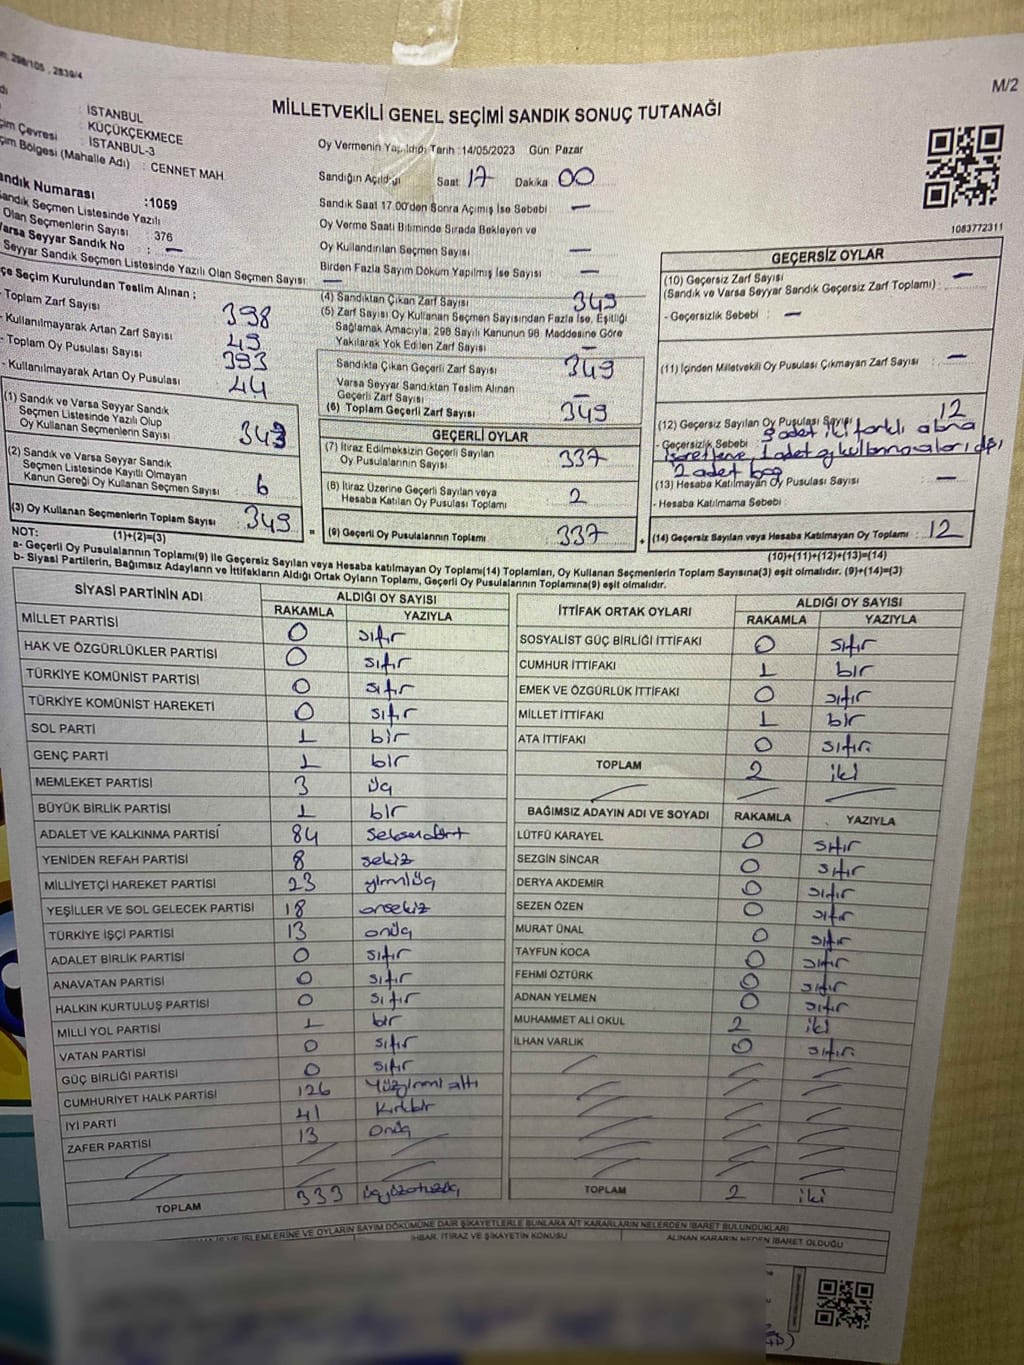 298/105 , 2839/4
M/2
MİLLETVEKİLİ GENEL SEÇİMİ SANDIK SONUÇ TUTANAĞI
: İSTANBUL
: KÜÇÜKÇEKMECE
çim Çevresi : İSTANBUL-3
çim Bölgesi (Mahalle Adı) : CENNET MAH.
andık Numarası :1059
Sandık Seçmen Listesinde Yazılı
Olan Seçmenlerin Sayısı : 376
Varsa Seyyar Sandık No : —
Seyyar Sandık Seçmen Listesinde Yazılı Olan Seçmen Sayısı : —
çe Seçim Kurulundan Teslim Alınan ;
- Toplam Zarf Sayısı 398
- Kullanılmayarak Artan Zarf Sayısı 49
- Toplam Oy Pusulası Sayısı 393
- Kullanılmayarak Artan Oy Pusulası 44
(1) Sandık ve Varsa Seyyar Sandık
Seçmen Listesinde Yazılı Olup
Oy Kullanan Seçmenlerin Sayısı 343
(2) Sandık ve Varsa Seyyar Sandık
Seçmen Listesinde Kayıtlı Olmayan
Kanun Gereği Oy Kullanan Seçmen Sayısı 6
(3) Oy Kullanan Seçmenlerin Toplam Sayısı 349
(1)+(2)=(3)
Oy Vermenin Yapıldığı Tarih :14/05/2023 Gün: Pazar
Sandığın Açıldığı Saat 17 Dakika 00
Sandık Saat 17.00'den Sonra Açımış İse Sebebi —
Oy Verme Saati Bitiminde Sırada Bekleyen ve
Oy Kullandırılan Seçmen Sayısı —
Birden Fazla Sayım Döküm Yapılmış İse Sayısı —
(4) Sandıktan Çıkan Zarf Sayısı 349
(5) Zarf Sayısı Oy Kullanan Seçmen Sayısından Fazla İse, Eşitliği
Sağlamak Amacıyla; 298 Sayılı Kanunun 98. Maddesine Göre
Yakılarak Yok Edilen Zarf Sayısı —
Sandıkta Çıkan Geçerli Zarf Sayısı 349
Varsa Seyyar Sandıktan Teslim Alınan
Geçerli Zarf Sayısı —
(6) Toplam Geçerli Zarf Sayısı 349
GEÇERLİ OYLAR
(7) İtiraz Edilmeksizin Geçerli Sayılan
Oy Pusulalarının Sayısı 337
(8) İtiraz Üzerine Geçerli Sayılan veya
Hesaba Katılan Oy Pusulası Toplamı 2
= (9) Geçerli Oy Pusulalarının Toplamı 337 +
1083772311
GEÇERSİZ OYLAR
(10) Geçersiz Zarf Sayısı —
(Sandık ve Varsa Seyyar Sandık Geçersiz Zarf Toplamı) :
- Geçersizlik Sebebi : —
(11) İçinden Milletvekili Oy Pusulası Çıkmayan Zarf Sayısı : —
(12) Geçersiz Sayılan Oy Pusulası Sayısı 12
- Geçersizlik Sebebi : 9 adet iki farklı alana
işaretleme, 1 adet oy kullanma alanı dışı
2 adet boş
(13) Hesaba Katılmayan Oy Pusulası Sayısı : —
- Hesaba Katılmama Sebebi :
(14) Geçersiz Sayılan veya Hesaba Katılmayan Oy Toplamı : 12
(10)+(11)+(12)+(13)=(14)
NOT:
a- Geçerli Oy Pusulalarının Toplamı(9) ile Geçersiz Sayılan veya Hesaba Katılmayan Oy Toplamı(14) Toplamları, Oy Kullanan Seçmenlerin Toplam Sayısına(3) eşit olmalıdır. (9)+(14)=(3)
b- Siyasi Partilerin, Bağımsız Adayların ve İttifakların Aldığı Ortak Oyların Toplamı, Geçerli Oy Pusulalarının Toplamına(9) eşit olmalıdır.
SİYASİ PARTİNİN ADI ALDIĞI OY SAYISI
RAKAMLA YAZIYLA
MİLLET PARTİSI 0 sıfır
HAK VE ÖZGÜRLÜKLER PARTİSİ 0 sıfır
TÜRKİYE KOMÜNİST PARTİSİ 0 sıfır
TÜRKİYE KOMÜNİST HAREKETİ 0 sıfır
SOL PARTİ 1 bir
GENÇ PARTİ 1 bir
MEMLEKET PARTİSİ 3 üç
BÜYÜK BİRLİK PARTİSİ 1 bir
ADALET VE KALKINMA PARTİSİ 84 seksendört
YENİDEN REFAH PARTİSİ 8 sekiz
MİLLİYETÇİ HAREKET PARTİSİ 23 yirmiüç
YEŞİLLER VE SOL GELECEK PARTİSİ 18 onsekiz
TÜRKİYE İŞÇİ PARTİSİ 13 onüç
ADALET BİRLİK PARTİSİ 0 sıfır
ANAVATAN PARTİSİ 0 sıfır
HALKIN KURTULUŞ PARTİSİ 0 sıfır
MİLLİ YOL PARTİSİ 1 bir
VATAN PARTİSİ 0 sıfır
GÜÇ BİRLİĞİ PARTİSİ 0 sıfır
CUMHURİYET HALK PARTİSİ 126 Yüzyirmi altı
İYİ PARTİ 41 Kırkbir
ZAFER PARTİSİ 13 onüç
TOPLAM 333 üçyüzotuzüç
İTTİFAK ORTAK OYLARI ALDIĞI OY SAYISI
RAKAMLA YAZIYLA
SOSYALİST GÜÇ BİRLİĞİ İTTİFAKI 0 sıfır
CUMHUR İTTİFAKI 1 bir
EMEK VE ÖZGÜRLÜK İTTİFAKI 0 sıfır
MİLLET İTTİFAKI 1 bir
ATA İTTİFAKI 0 sıfır
TOPLAM 2 iki
BAĞIMSIZ ADAYIN ADI VE SOYADI RAKAMLA YAZIYLA
LÜTFÜ KARAYEL 0 sıfır
SEZGİN SİNCAR 0 sıfır
DERYA AKDEMİR 0 sıfır
SEZEN ÖZEN 0 sıfır
MURAT ÜNAL 0 sıfır
TAYFUN KOCA 0 sıfır
FEHMİ ÖZTÜRK 0 sıfır
ADNAN YELMEN 0 sıfır
MUHAMMET ALİ OKUL 2 iki
İLHAN VARLIK 0 sıfır
TOPLAM 2 iki
İŞLEMLERİNE VE OYLARIN SAYIM DÖKÜMÜNE DAİR ŞİKAYETLERLE BUNLARA AİT KARARLARIN NELERDEN İBARET BULUNDUKLARI
İHBAR, İTİRAZ VE ŞİKAYETİN KONUSU
ALINAN KARARIN NEDEN İBARET OLDUĞU